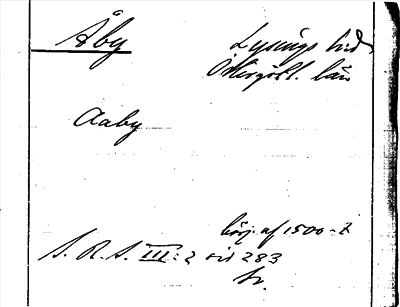 Åby Lysings hd
Östergötl. län
Aaby
börj. af 1500-t
S. R. S. III: 2 sid 283